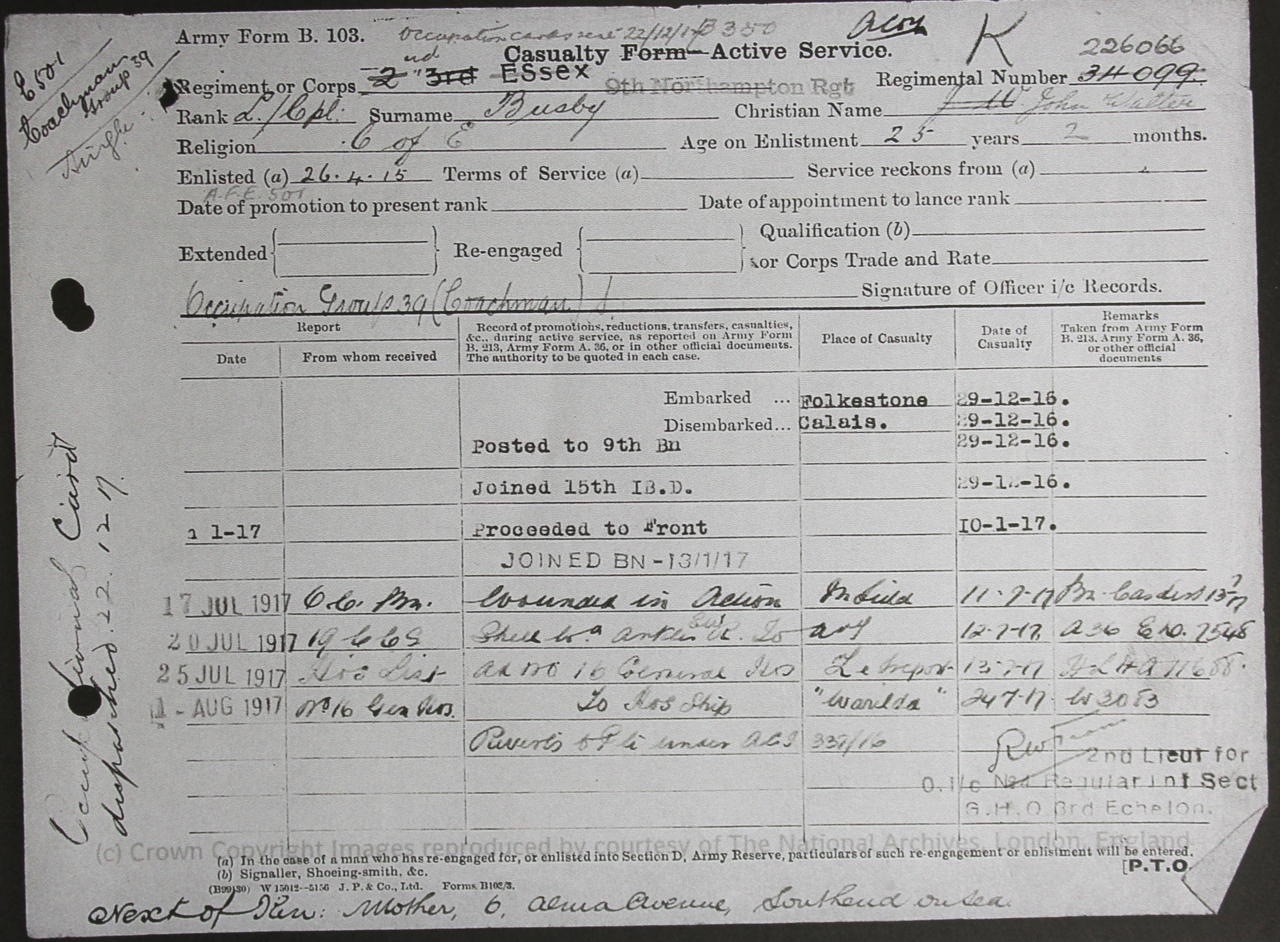 Army Form B. 103. Occupation card sent 22/12/17 B350
K
226066
Casualty Form—Active Service.
E501
Coachman
Group 39
Single
Regiment or Corps 2nd 3rd Essex 9th Northampton Rgt Regimental Number 34099
Rank L/Cpl. Surname Busby Christian Name John Walter
Religion C of E Age on Enlistment 25 years 2 months.
Enlisted (a) 26.4.15 Terms of Service (a) Service reckons from (a)
A.F.E. 501
Date of promotion to present rank Date of appointment to lance rank
Extended Re-engaged Qualification (b)
or Corps Trade and Rate
Occupation Group 39 (Coachman) Signature of Officer i/c Records.
Report
Date From whom received
Record of promotions, reductions, transfers, casualties, &c., during active service, as reported on Army Form B. 213, Army Form A. 36, or in other official documents. The authority to be quoted in each case.
Place of Casualty
Date of Casualty
Remarks
Taken from Army Form B. 213, Army Form A. 36, or other official documents
Embarked ... Folkestone 29-12-16.
Disembarked... Calais. 29-12-16.
Posted to 9th Bn 29-12-16.
Joined 15th IB.D. 29-12-16.
1-17 Proceeded to Front 10-1-17.
JOINED BN - 13/1/17
17 JUL 1917 O.C. Bn. Wounded in Action In Field 11-7-17
20 JUL 1917 19 CCS Shell Wd Ankle R. To 12-7-17 A36
25 JUL 1917 Hos List Ad No 16 General Hos Le Treport 13-7-17
1 - AUG 1917 No 16 Gen Hos. To Hos Ship "Warilda" 24 7-17 W3083
Reverts to Pte under ACI 337/16
2nd Lieut for
O. i/c No 4 Regular Inf Sect
G.H.Q 3rd Echelon.
Card
dispatched. 22.12.17.
(c) Crown Copyright Images reproduced by courtesy of The National Archives, London, England
(a) In the case of a man who has re-engaged for, or enlisted into Section D, Army Reserve, particulars of such re-engagement or enlistment will be entered.
(b) Signaller, Shoeing-smith, &c.
[P.T.O.
(B9980) W 15012—5156 J. P. & Co., Ltd. Forms B103/3.
Next of Kin: Mother, 6, Alma Avenue, Southend on Sea.